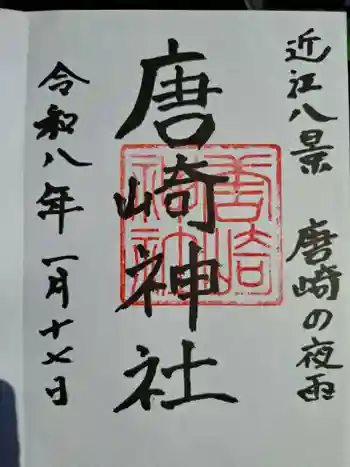 近江八景 唐崎の夜雨
唐崎神社
唐崎神社
令和八年 一月十七日